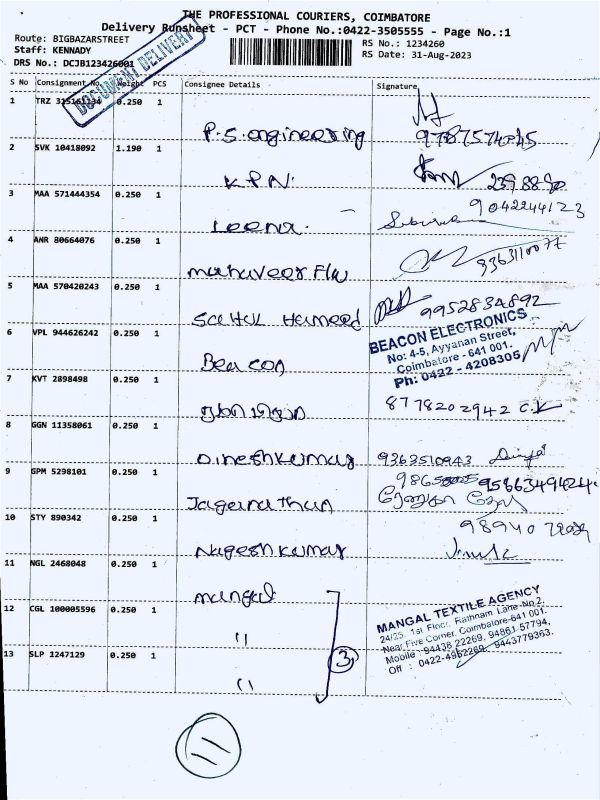 THE PROFESSIONAL COURIERS, COIMBATORE
Delivery Runsheet - PCT - Phone No.:0422-3505555 - Page No.:1
Route: BIGBAZARSTREET
Staff: KENNADY
DRS No.: DCJB123426001
RS No.: 1234260
RS Date: 31-Aug-2023
DOCUMENT DELIVERY
S No Consignment No. Weight PCS Consignee Details Signature
1 TRZ 0.250 1
P.S. engineering
2 SVK 10418092 1.190 1
KPN
3 MAA 571444354 0.250 1 9042244123
Leena.
4 ANR 80664076 0.250 1 9363110077
mahaveer Flu
5 MAA 570420243 0.250 1 9952834892
Sahul Hameed
BEACON ELECTRONICS
No: 4-5, Ayyanan Street,
Coimbatore - 641 001.
Ph: 0422 - 4208305
6 VPL 944626242 0.250 1
Beacon
7 KVT 2898498 0.250 1
8778202942 C.K
8 GGN 11358061 0.250 1
Dineshkumar 9363510943
9 GPM 5298101 0.250 1 9586349424
Jaganathan
10 STY 890342 0.250 1
Nageshkumar
11 NGL 2468048 0.250 1
mangal
12 CGL 100005596 0.250 1
"
13 SLP 1247129 0.250 1
"
3
MANGAL TEXTILE AGENCY
24/25, 1st Floor, Rathnam Lane No.2,
Near Five Corner, Coimbatore-641 001.
Mobile : 94438 22269, 94861 57794,
Off : 0422-4952269, 9443779363.
11